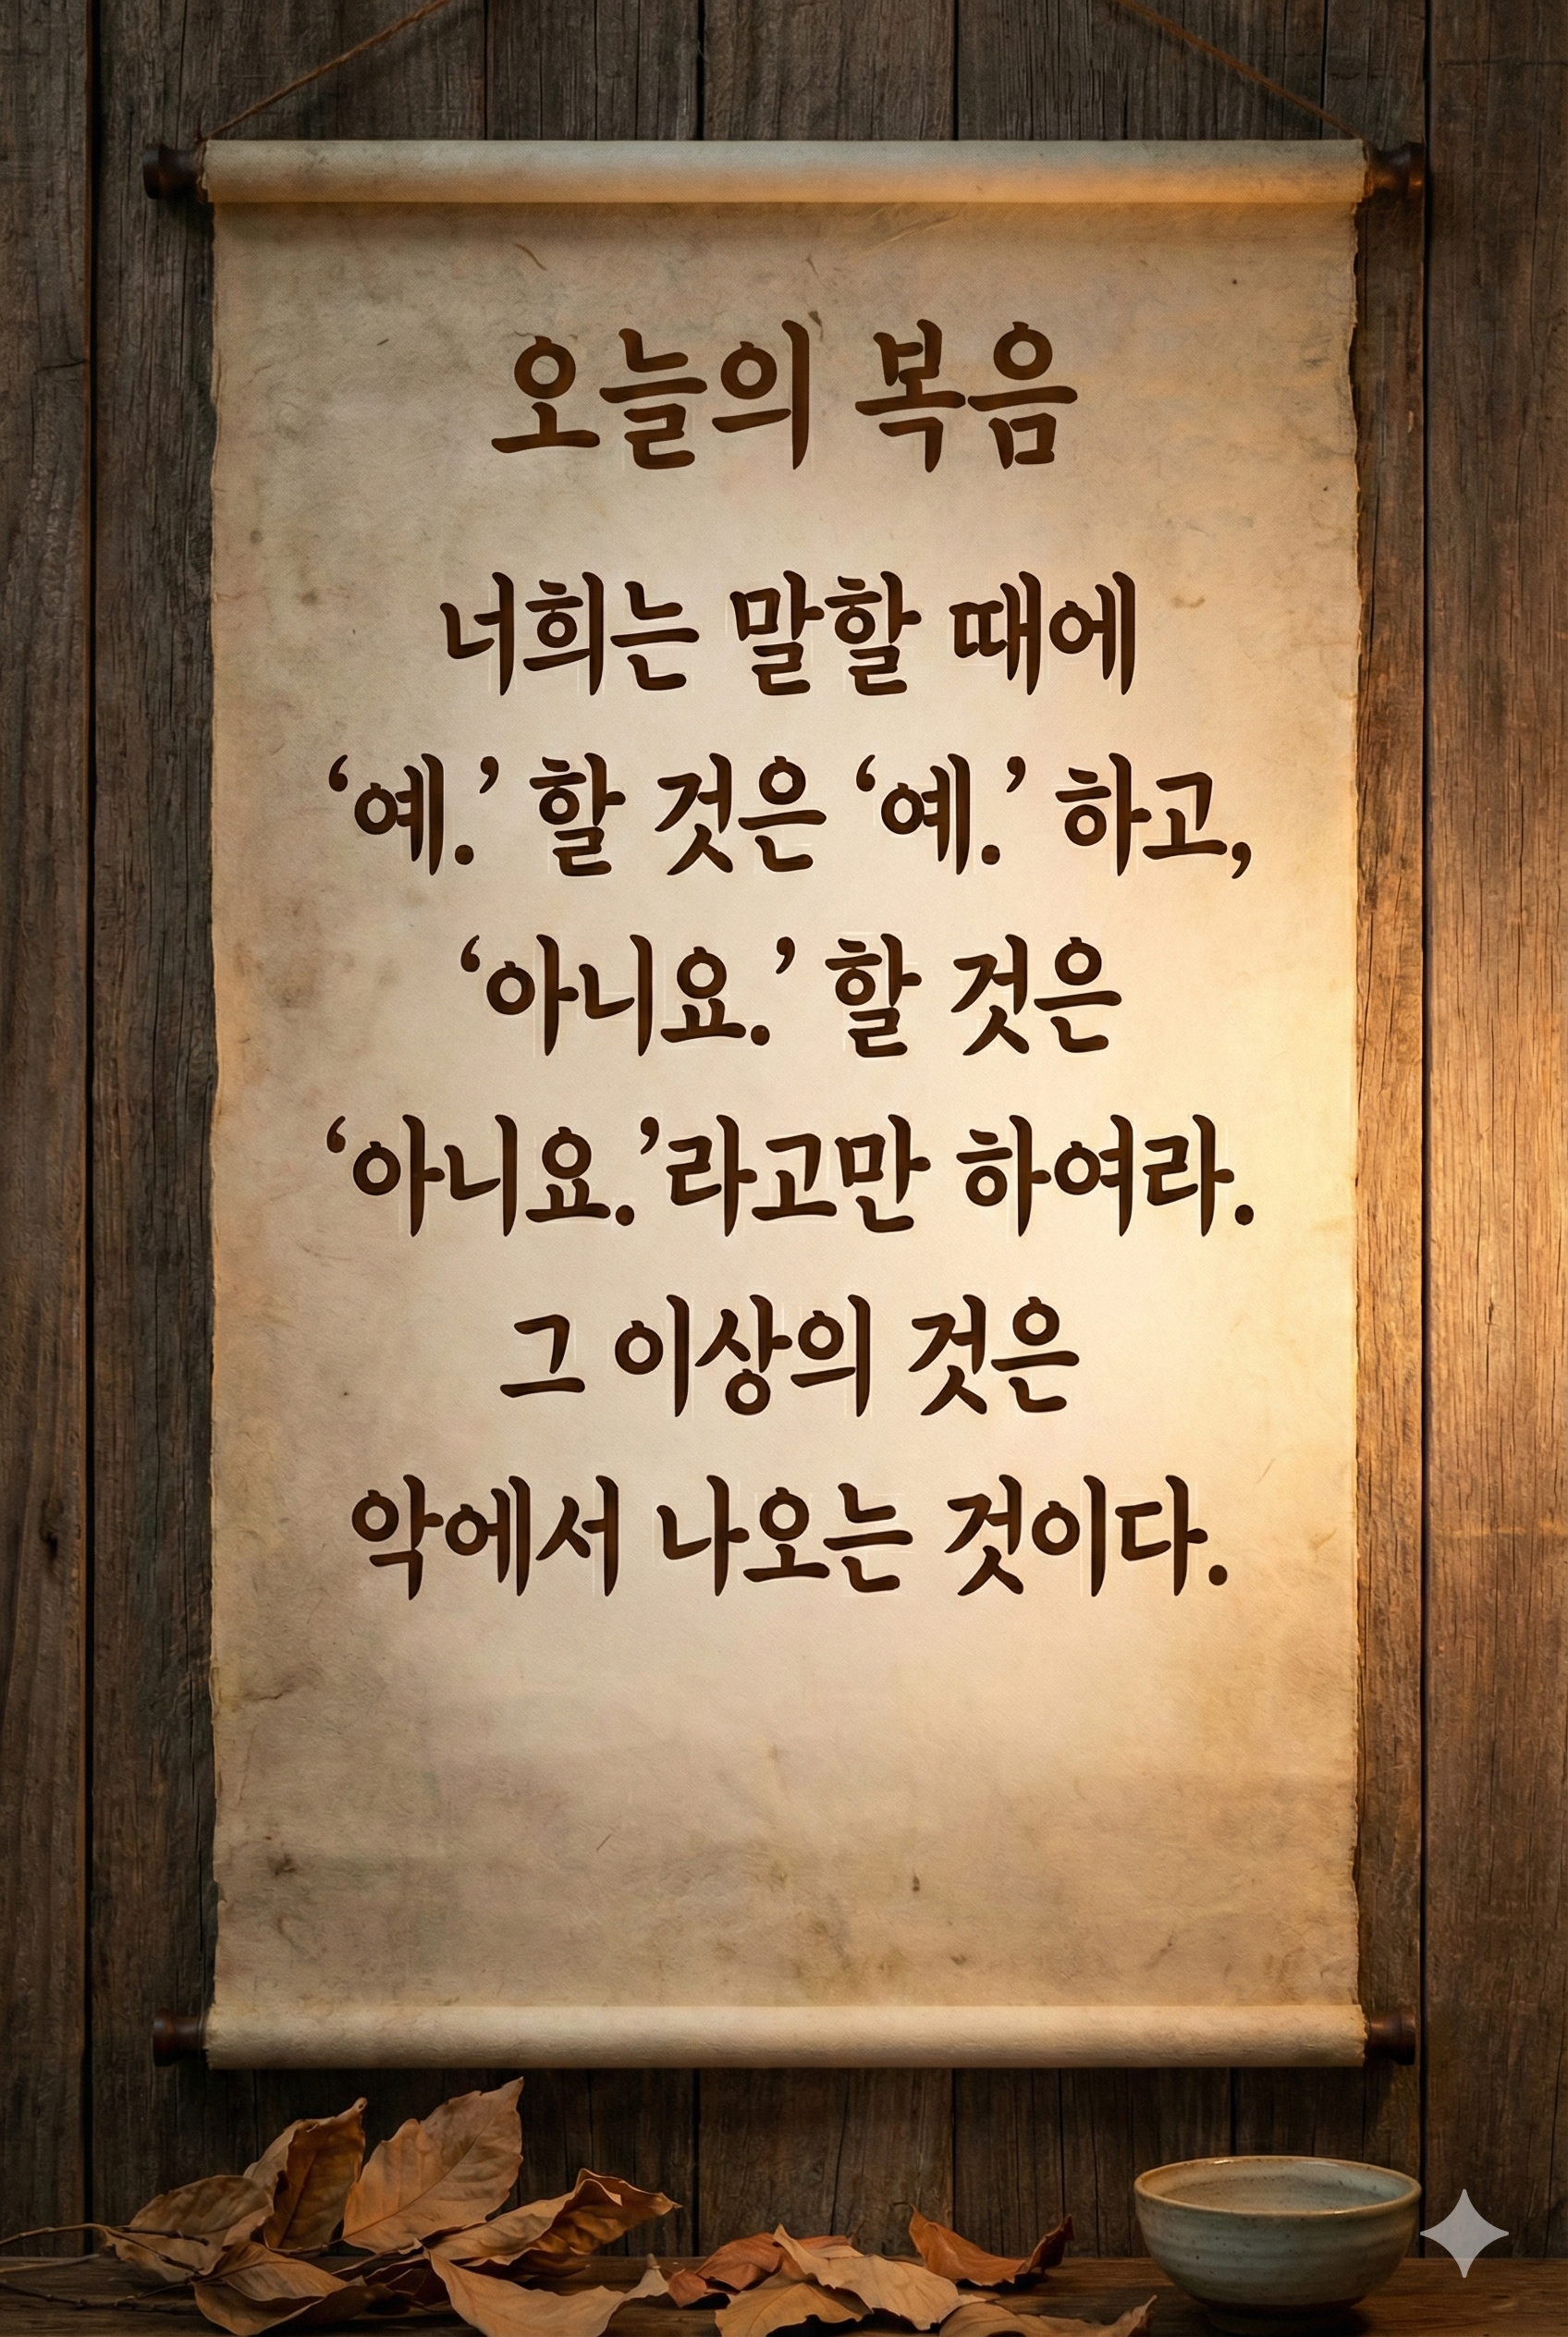 오늘의 복음
너희는 말할 때에
‘예.’ 할 것은 ‘예.’ 하고,
‘아니요.’ 할 것은
‘아니요.’라고만 하여라.
그 이상의 것은
악에서 나오는 것이다.